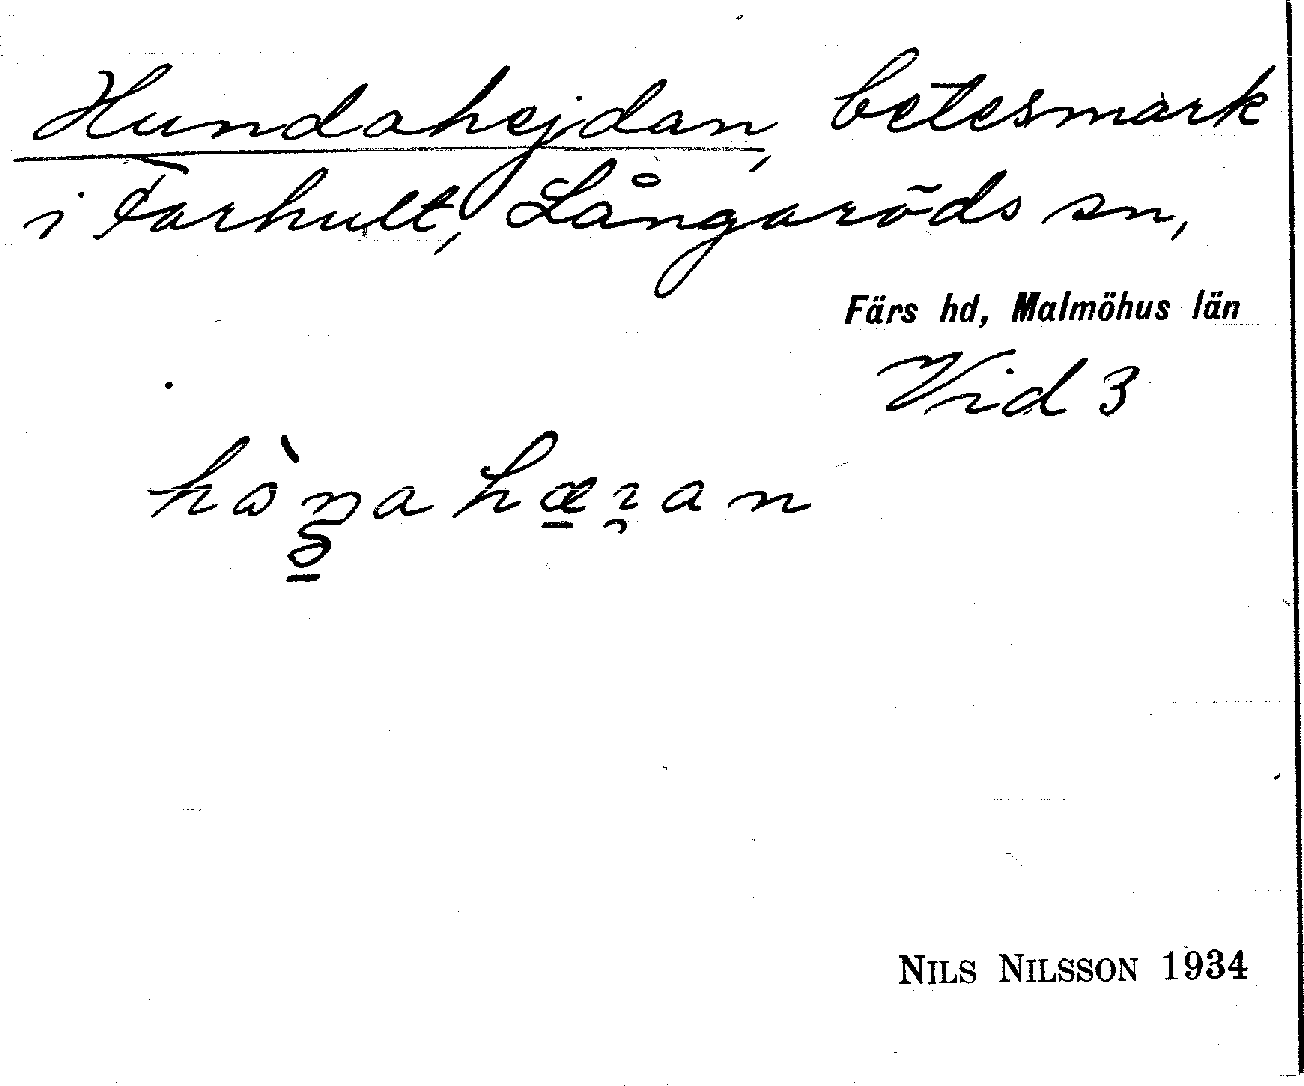 Hundahejdan, betesmark
i Farhult, Långaröds sn,
Färs hd, Malmöhus län
Vid 3
NILS NILSSON 1934